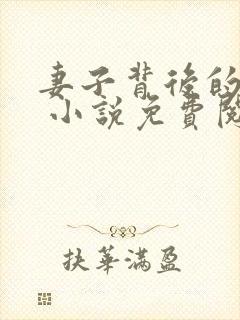 妻子背後的
小說免費閱
扶華滿盈